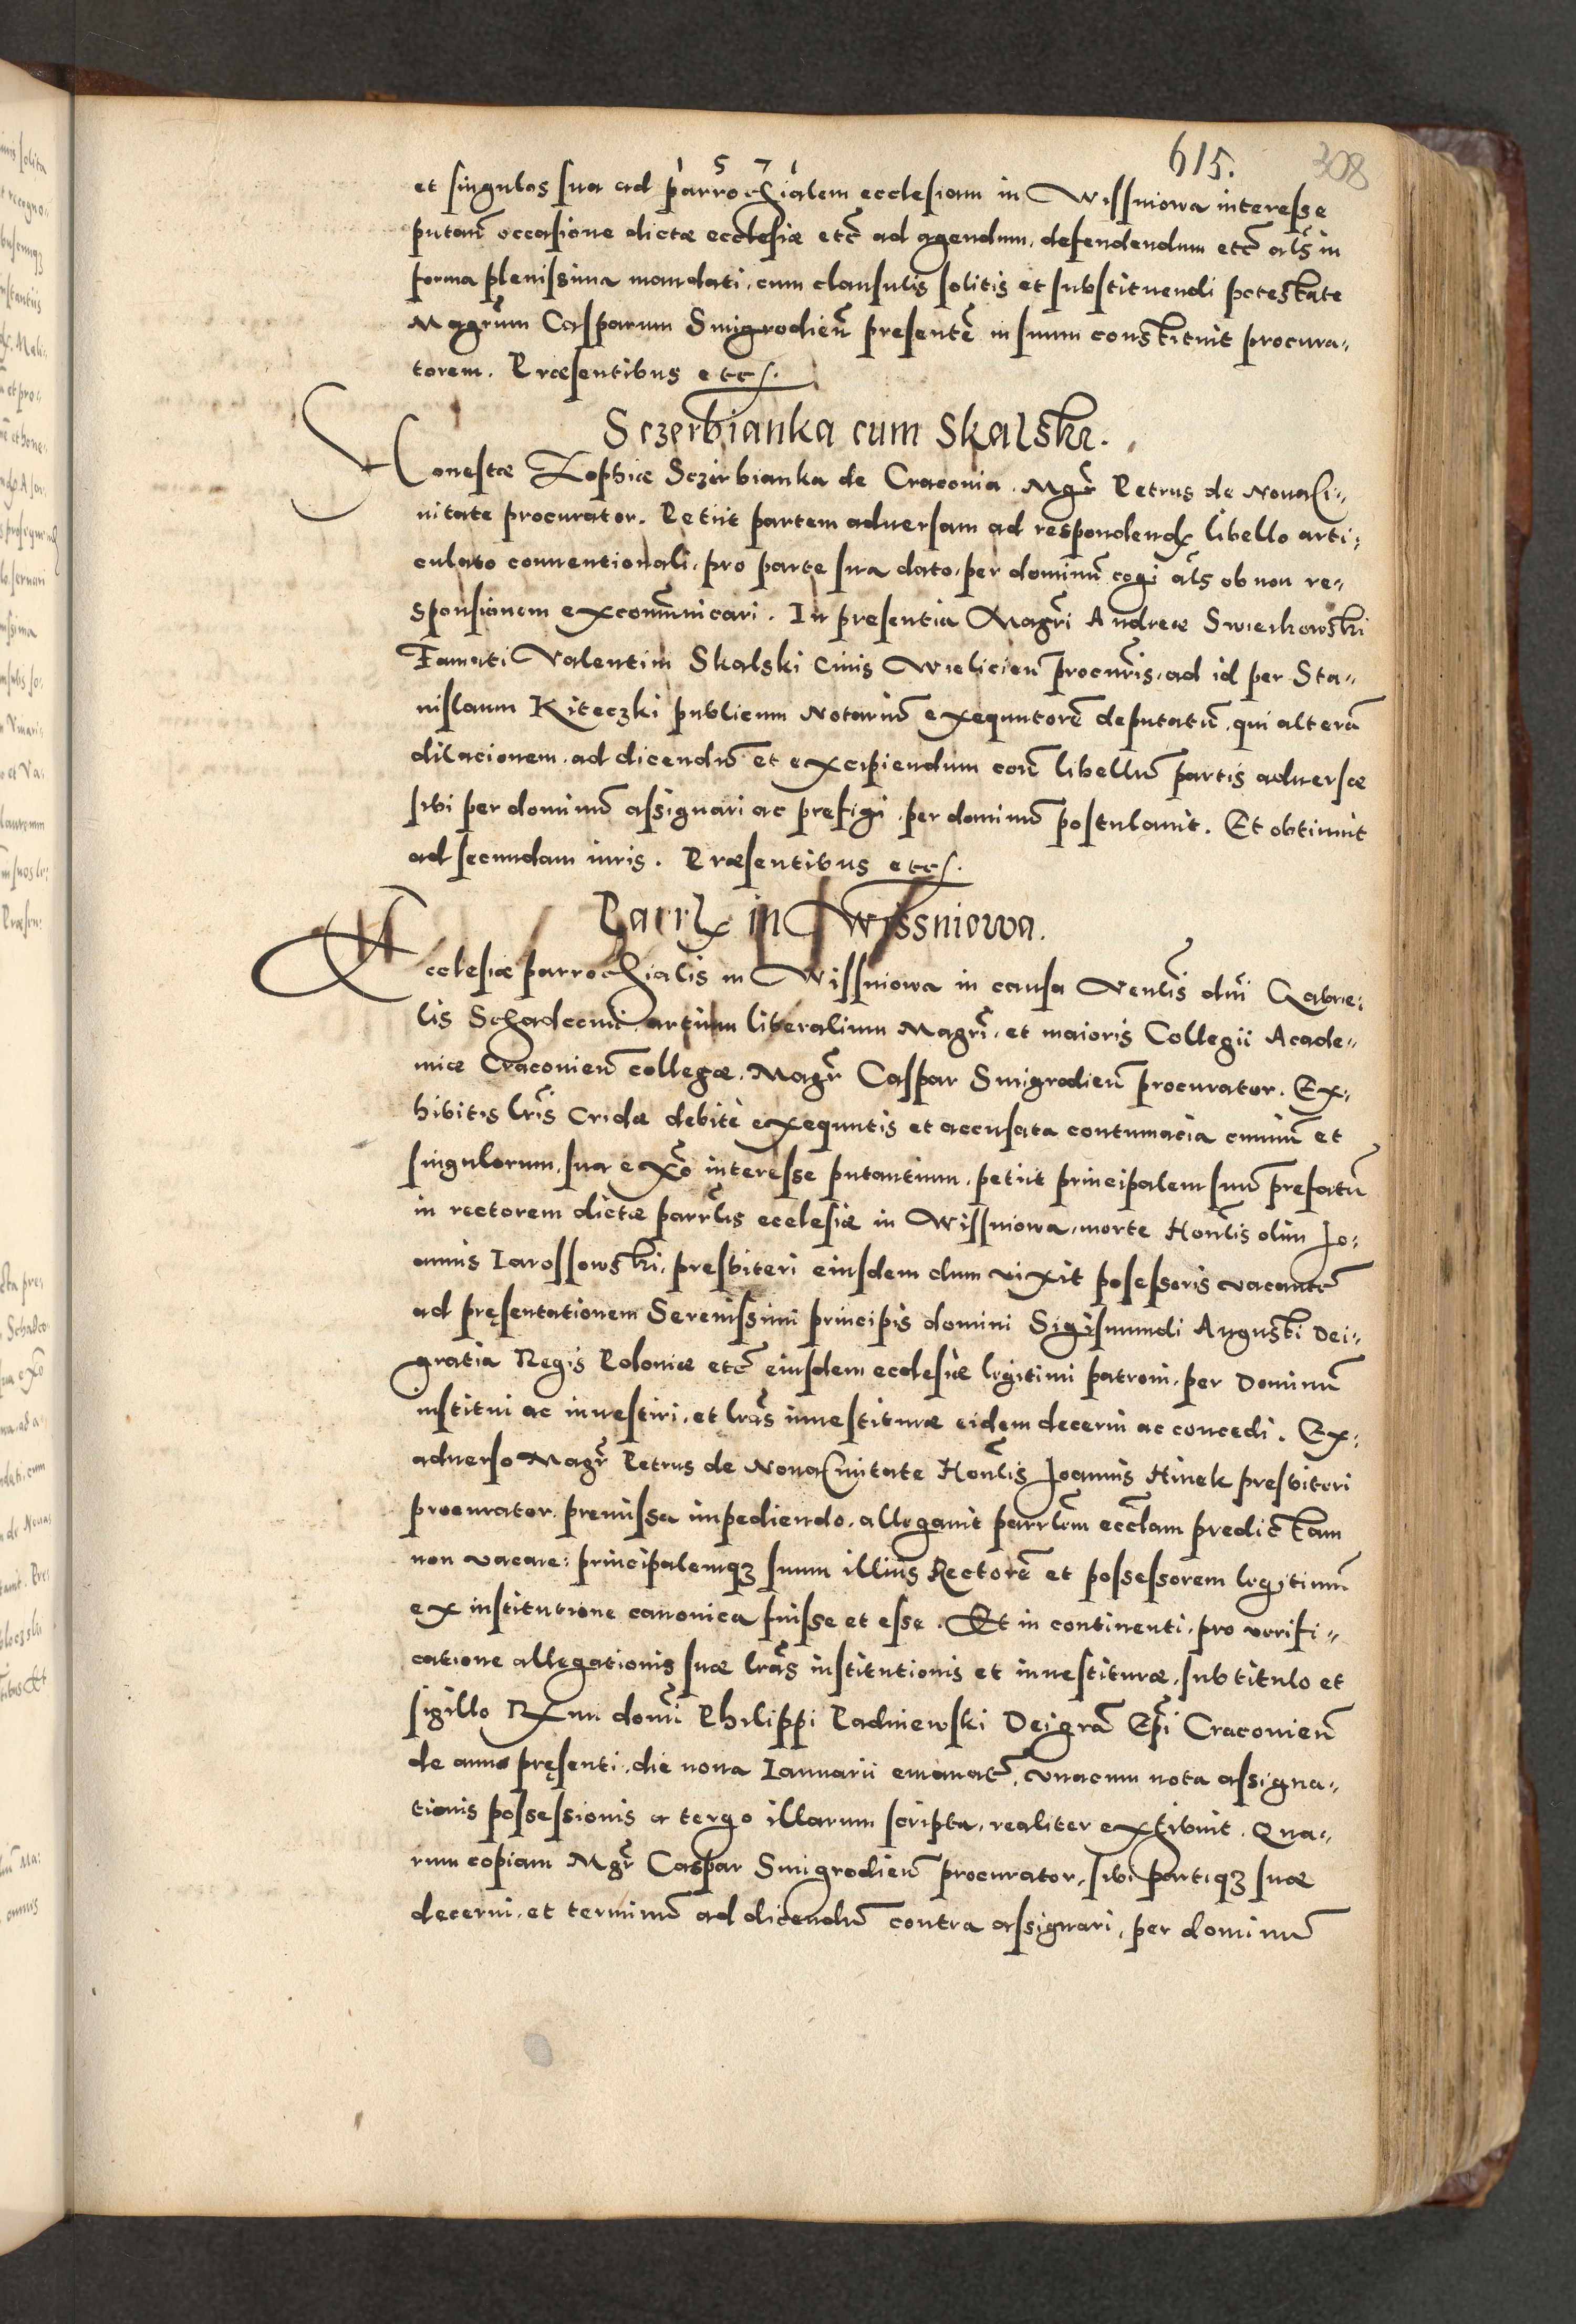 615.
308
1 5 7 1
et singulos sua ad parrochialem ecclesiam in Wissniowa interesse
putañ occasione dictæ ecclesiæ etc̃ ad agendum, defendendum etc̃ als̃ in
forma plenissima mandati, cum clausulis solitis et substituendi potestate
Magr̃um Casparum Smigrodieñ presentẽ in suum constituit procura„
torem. Præsentibus etc.
Sczerbianka cum Skalski.
Honestæ Zophiæ Sczerbianka de Craconia. Mgr̃ Petrus de Noua Ci„
uitate procurator. Petiit partem aduersam ad respondend libello arti:
culato conuentionali, pro parte sua dato, per dominũ cogi als̃ ob non re„
sponsionem excom̃unicari. In presentia Magr̃i Andreæ Swierkowski
Famati Valentini Skalski Ciuis Wielicieñ procur̃is, ad id per Sta„
nislaum Kiteczki publicum Notariũ exequutorẽ deputatũ, qui alterã
dilacionem, ad dicendũ et excipiendum coñ libellũ partis aduersæ
sibi per dominũ assignari ac prefigi, per dominũ postulauit. Et obtinuit
ad secundam iuris. Præsentibus etc.
Parrlx in Wissniowa.
Ecclesiæ parrochialis in Wissniowa in causa Venl̃is dñi Gabrie:
lis Schadcouii artium liberalium Magr̃i, et maioris Collegii Acade„
miæ Craconieñ collegæ, Magr̃ Caspar Smigrodieñ procurator. Ex„
hibitis lr̃is Cridæ debitè exequutis et accusata contumacia omniũ et
singulorum, sua ex̃o interesse putantium, petiit principalem suũ prefatũ
in rectorem dictæ parrl̃is ecclesiæ in Wissniowa, morte Honl̃is olim Jo:
annis Iarossowski, presbiteri eiusdem dum vixit posessoris vacantẽ
ad pręsentationem Serenissimi principis domini Sigismundi Augusti Dei„
gratia Regis Poloniæ etc̃ eiusdem ecclesiæ legitimi patroni, per Dominũ
institui ac inuestiri, et lr̃as inuestituræ eidem decerni ac concedi. Ex„
aduerso Magr̃ Petrus de Noua Ciuitate Honl̃is Joannis Hinek presbiteri
procurator, premissa impediendo, allegauit parrl̃em eccl̃am predictam
non vacare: principalemqȝ suum illius Rectorẽ et possessorem legitimũ
ex institutione canonica fuisse et esse. Et in continenti, pro verifi„
catione allegationis suæ lr̃as institutionis et inuestituræ, sub titulo et
sigillo Rxmi domĩ Philippi Padniewski Dei grã Ep̃i Craconieñ
de anno pręsenti, die nona Ianuarii emanat̃, vnacum nota assigna„
tionis possessionis a tergo illarum scripta, realiter exhibuit. Qua„
rum copiam Mgr̃ Caspar Smigrodieñ procurator, sibi partiqȝ suæ
decerni, et terminũ ad dicendũ contra assignari, per dominũ